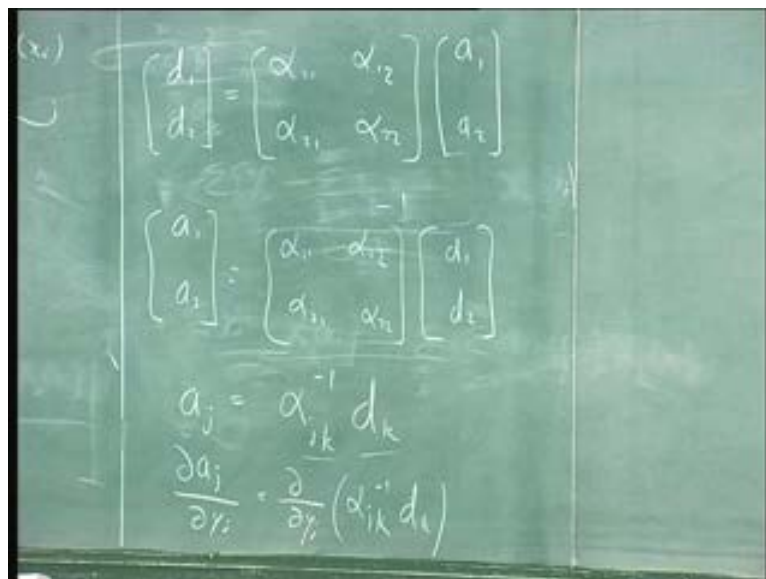 (x_i)
[d_1; d_2] = [α_{11} α_{12}; α_{21} α_{22}] [a_1; a_2]
[a_1; a_2] = [α_{11} α_{12}; α_{21} α_{22}]^{-1} [d_1; d_2]
a_j = α_{jk}^{-1} d_k
∂a_j/∂y_i = ∂/∂y_i (α_{jk}^{-1} d_k)